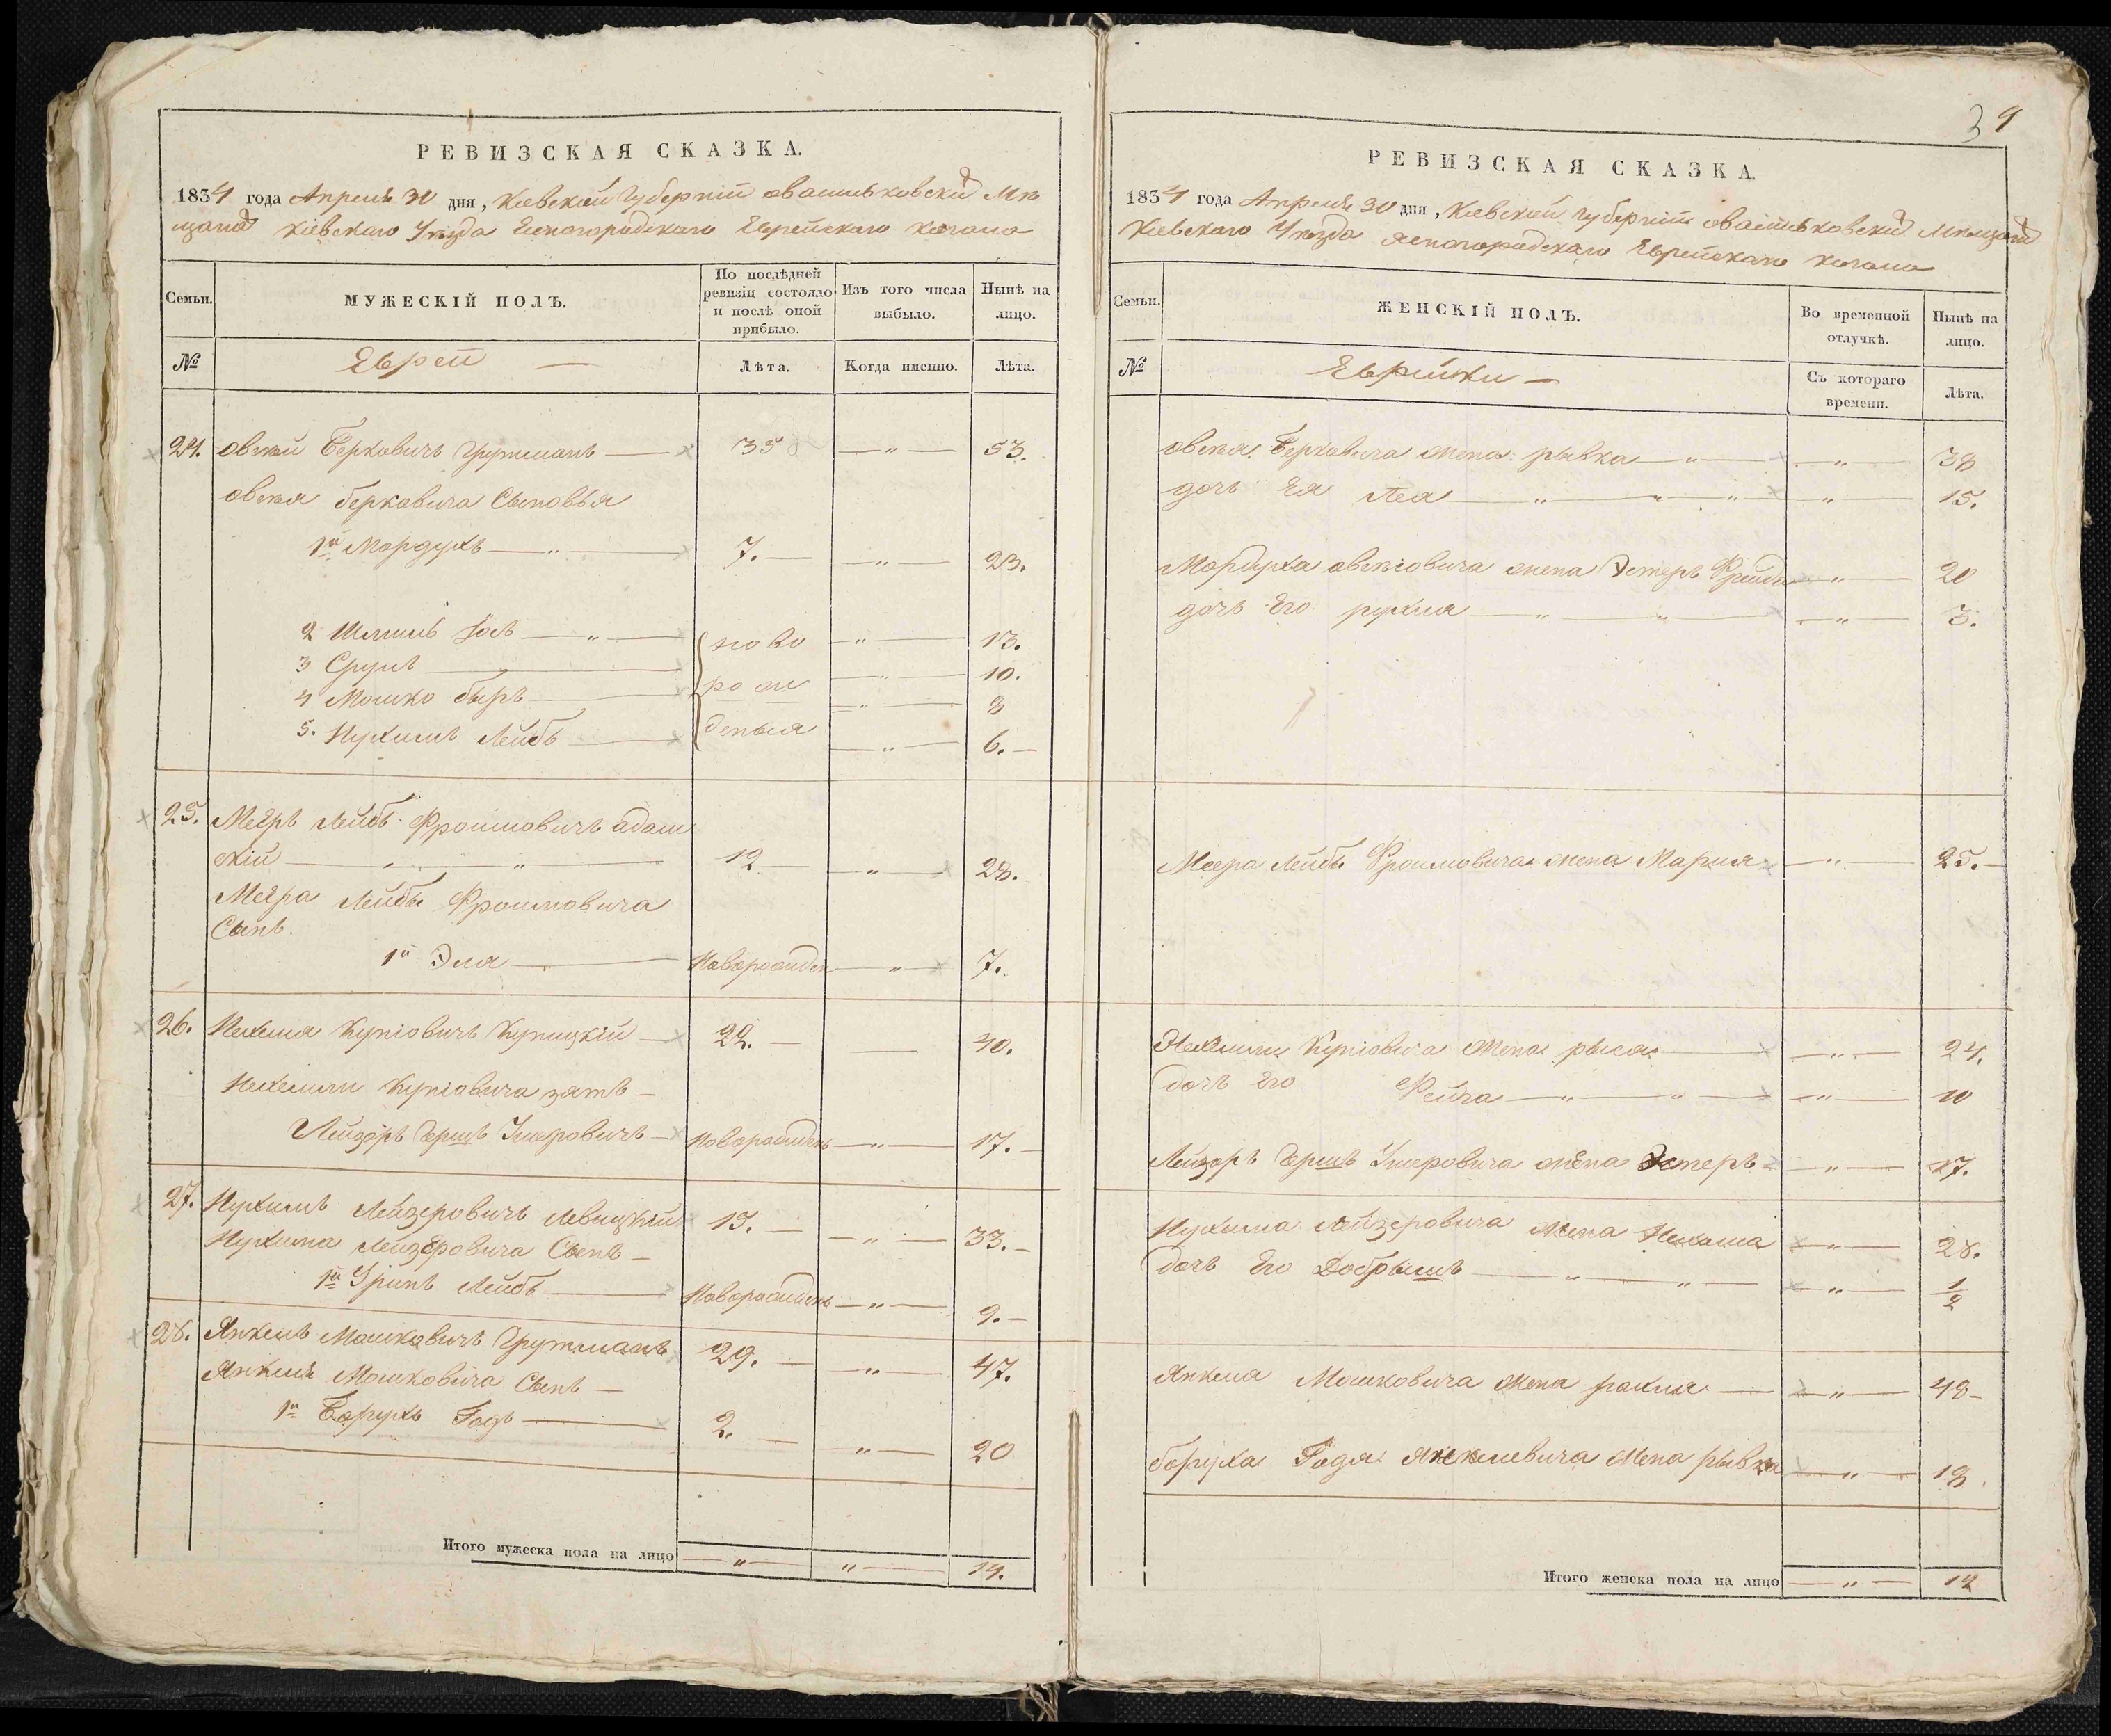 РЕВИЗСКАЯ СКАЗКА.
1834 года Апреля 30 дня, Киевской Губернїи овасильковскихъ Мѣ
щанъ Кіевскаго Уѣзда Ясногородскаго Еврейскаго Кагала
Семьи.
МУЖЕСКІЙ ПОЛЪ.
По послѣдней ревизіи состояло и послѣ оной прибыло.
Изъ того числа выбыло.
Нынѣ на лицо.
№
Евреи —
Лѣта.
Когда именно.
Лѣта.
24. овсей Берковичъ Грутманъ — 35 — „ — 53.
овсея берковича Сыновья
1й Мордухъ — „ — 7. — — „ — 23.
2 Шмиль Іосъ — „ — ново — „ — 13.
3 Сруль — рож — „ — 10.
4 Мошко бырь — — „ — 8
5. Нухимъ Лейбъ — деныя — „ — 6. —
25. Мееръ Лейбъ Фроимовичъ адам
скій — „ — „ — 12 — — „ — 28.
Меера Лейбы Фроимовича
Сынъ.
1й Эля — Новорожден — „ — 7.
26. Нехемя Купіовичъ Купицкій — 22. — — 40.
Нехемии Купіовича зять —
Лейзоръ Гершъ Умеровичъ — Новорожденъ — „ — 17. —
27. Нухимъ Лейзеровичъ Левицкій 15. — — „ — 33. —
Нухима Лейзеровича Сынъ —
1й Уринъ Лейбъ — Новорожденъ — „ — 9. —
28. Янкель Мошковичъ Грутманъ 29. — — „ — 47.
Янкеля Мошковича Сынъ —
1й Борухъ Годъ — 2. — — „ — 20
Итого мужеска пола на лицо — „ — „ — 14.
39
РЕВИЗСКАЯ СКАЗКА.
1834 года Апреля 30 дня, Киевской Губернїи овасильковскихъ Мѣщанъ
Киевскаго Уѣзда Ясногородскаго Еврейскаго Кагала
Семьи.
ЖЕНСКІЙ ПОЛЪ.
Во временной отлучкѣ.
Нынѣ на лицо.
№
Еврейки —
Съ котораго времени.
Лѣта.
овсея Берковича жена рывка — „ — — „ — 38
дочь Ея Лея — „ — „ — „ — „ — 15.
Мордуха овсѣіовича жена Эстеръ Фрейда — „ — 20
дочь Его рухля — „ — „ — — „ — 3.
Меера Лейбы Фроимовича жена Мария — „ — 25. —
Нехемии Купіовича жена рыся — — „ — 24.
дочь Его Фейга — „ — „ — — „ — 10
Лейзоръ Гершъ Умеровича жена Эстеръ — „ — 17.
Нухима Лейзеровича жена Нехама — „ — 28.
дочь Его Добрышъ — „ — „ — — „ — 1/2
Янкеля Мошковича жена рахля — — „ — 48 —
боруха Годя Янкелевича жена рывка — „ — 18
Итого женска пола на лицо — „ — 12